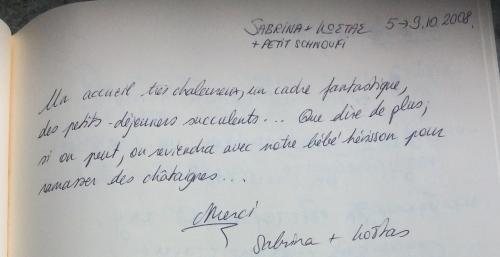 SABRINA + ΚΩΣΤΑΣ 5→9.10.2008.
+ PETIT SCHNOUFI
Un accueil très chaleureux, un cadre fantastique,
des petits-déjeuners succulents... Que dire de plus,
si on peut, on reviendra avec notre bébé hérisson pour
ramasser des châtaignes...
Merci
Sabrina + Kostas